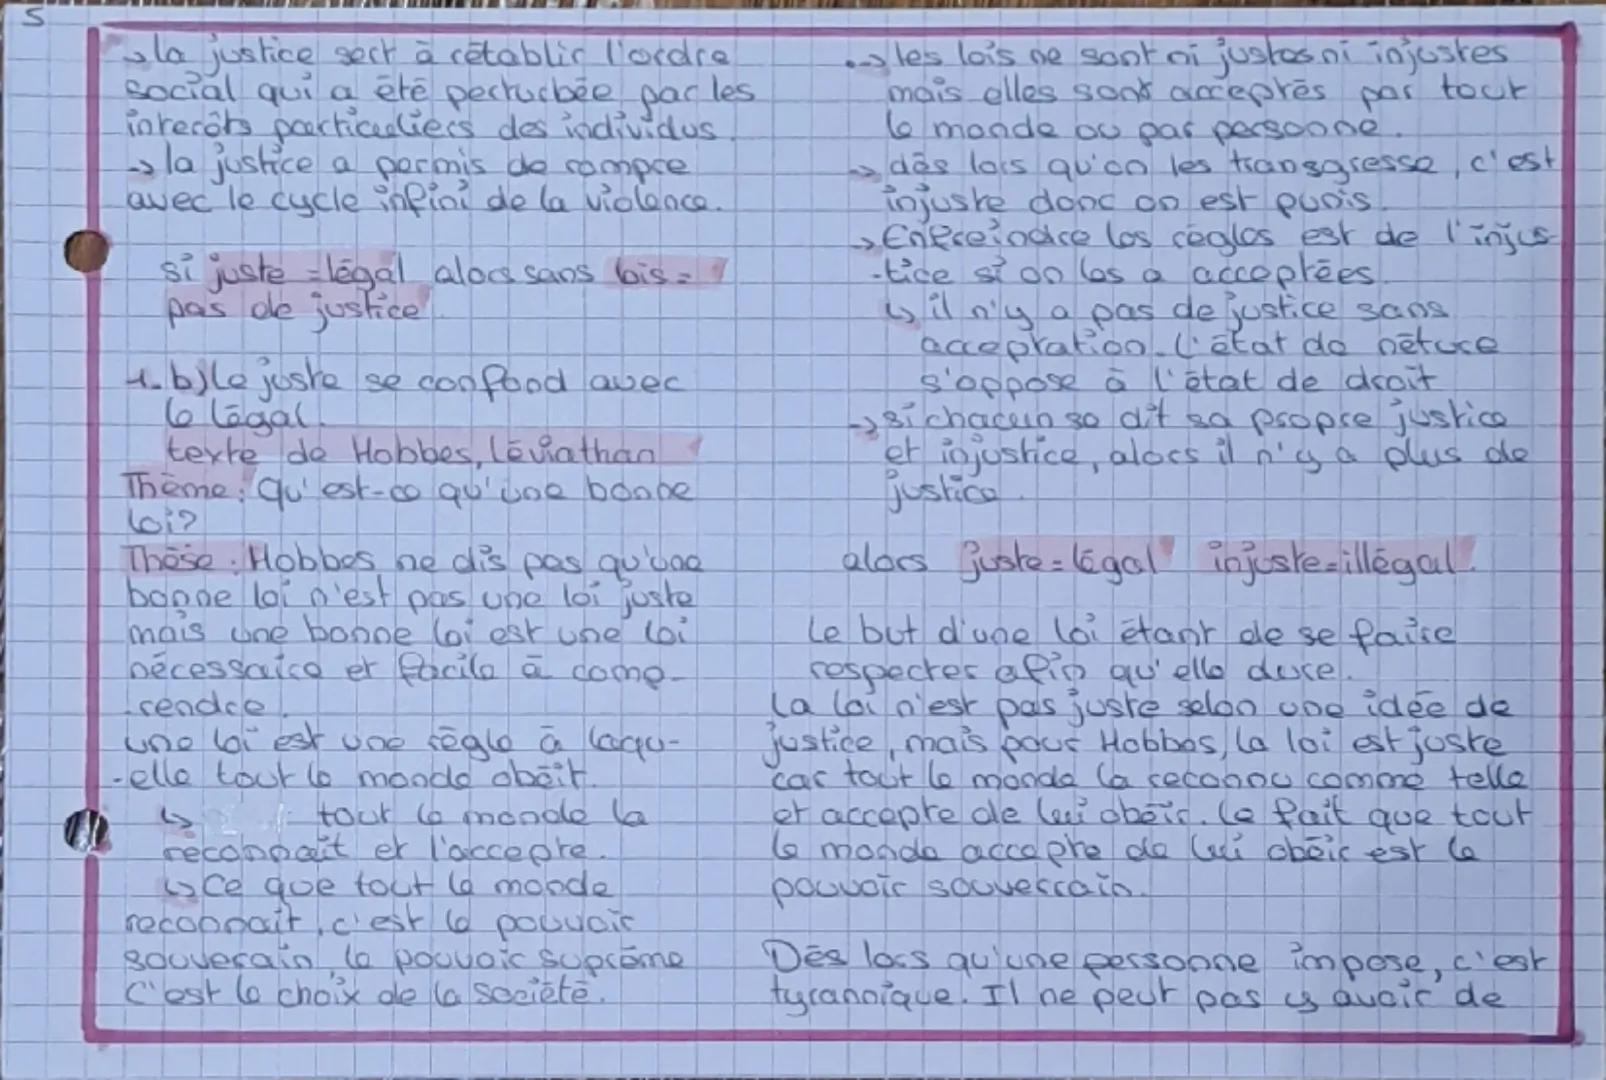 5
→ la justice sert à rétablir l'ordre
social qui a été perturbée par les
interêts particuliers des individus.
→ la justice a permis de rompre
avec le cycle infini de la violence.
si juste = légal alors sans lois =
pas de justice
1. b) Le juste se confond avec
le légal.
texte de Hobbes, Léviathan
Thème : Qu'est-ce qu'une bonne
loi ?
Thèse : Hobbes ne dis pas qu'une
bonne loi n'est pas une loi juste
mais une bonne loi est une loi
nécessaire et facile à comp-
-rendre.
une loi est une règle à laqu-
-elle tout le monde obéit.
↳ tout le monde la
reconnait et l'accepte.
↳ Ce que tout le monde
reconnait, c'est le pouvoir
souverain, le pouvoir suprême
C'est le choix de la société.
•→ les lois ne sont ni justes ni injustes
mais elles sont acceptés par tout
le monde ou par personne.
→ dès lors qu'on les transgresse, c'est
injuste donc on est punis.
→ Enfreindre les règles est de l'injus
-tice si on les a acceptées.
↳ il n'y a pas de justice sans
acceptation. L'état de nature
s'oppose à l'état de droit
→ si chacun se dit sa propre justice
et injustice, alors il n'y a plus de
justice.
alors juste = légal injuste = illégal.
Le but d'une loi étant de se faire
respecter afin qu'elle dure.
La loi n'est pas juste selon une idée de
justice, mais pour Hobbes, la loi est juste
car tout le monde la reconnu comme telle
et accepte de lui obéir. Le fait que tout
le monde accepte de lui obéir est le
pouvoir souverrain.
Dès lors qu'une personne impose, c'est
tyrannique. Il ne peut pas y avoir de